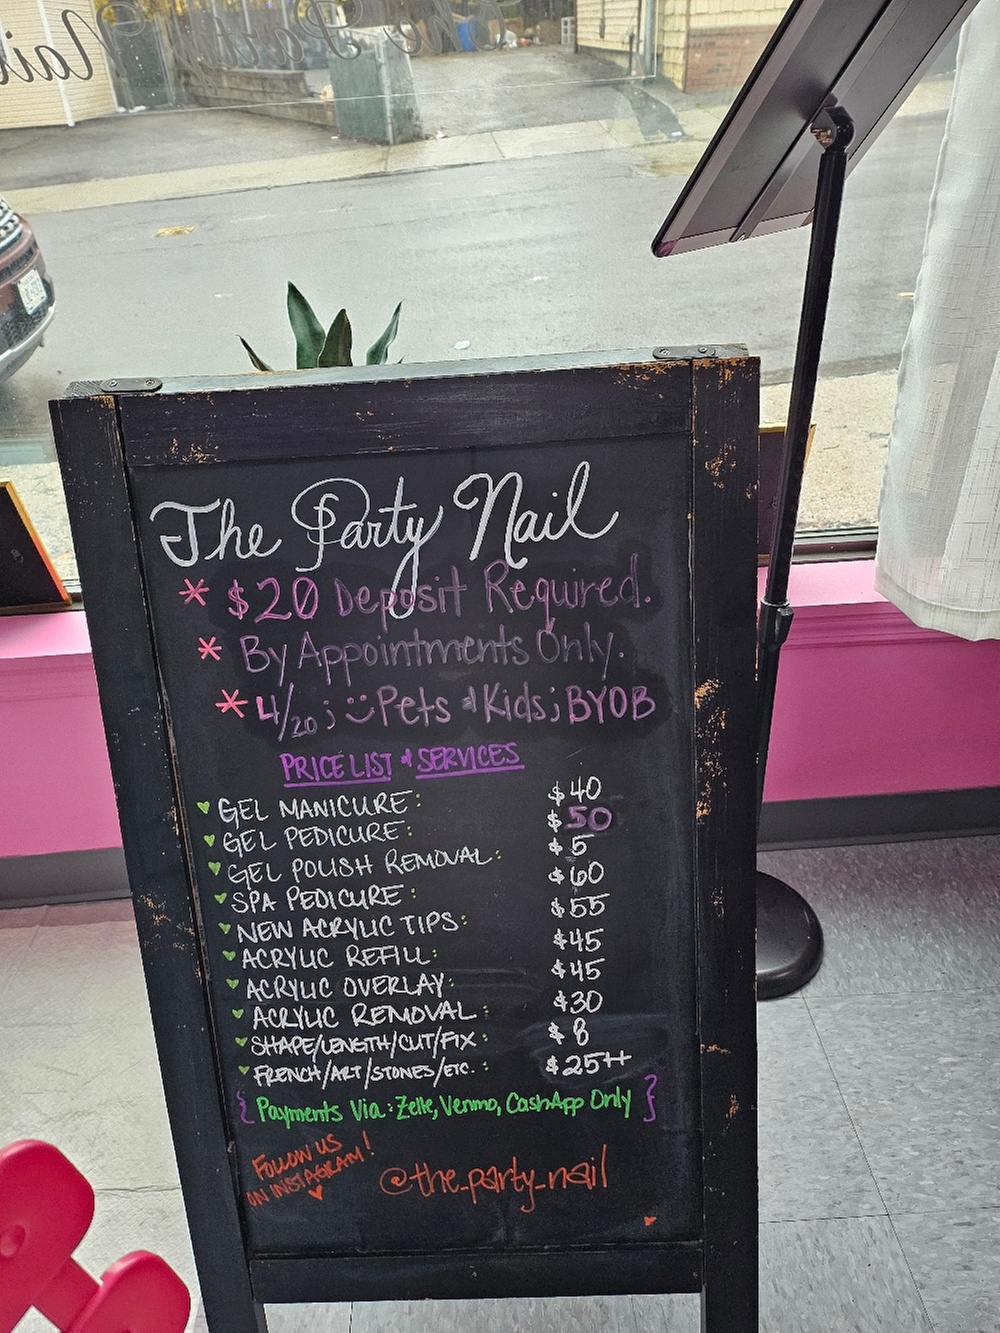 The Party Nail
The Party Nail
* $20 Deposit Required.
* By Appointments Only.
* 4/20; :) Pets & Kids; BYOB
PRICE LIST & SERVICES
♥ GEL MANICURE: $40
♥ GEL PEDICURE: $50
♥ GEL POLISH REMOVAL: $5
♥ SPA PEDICURE: $60
♥ NEW ACRYLIC TIPS: $55
♥ ACRYLIC REFILL: $45
♥ ACRYLIC OVERLAY: $45
♥ ACRYLIC REMOVAL: $30
♥ SHAPE/LENGTH/CUT/FIX: $8
♥ FRENCH/ART/STONES/ETC.: $25++
{ Payments Via: Zelle, Venmo, CashApp Only }
FOLLOW US
ON INSTAGRAM! ♥
@the_party_nail